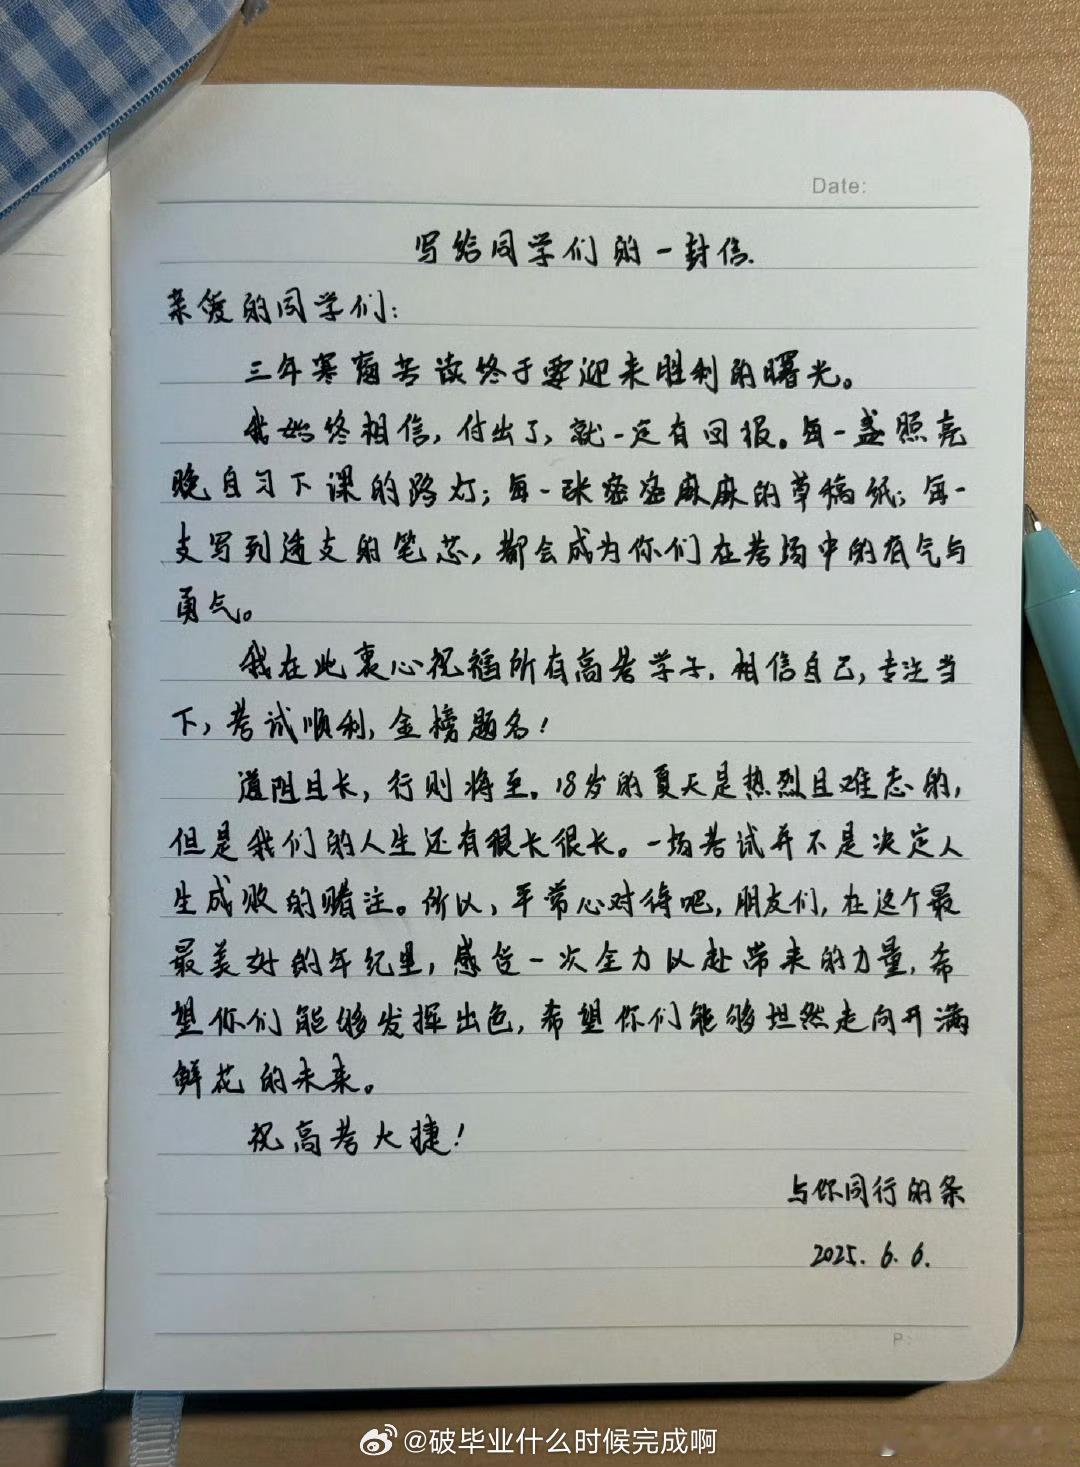 Date:
写给同学们的一封信.
亲爱的同学们：
三年寒窗苦读终于要迎来胜利的曙光。
我始终相信，付出了，就一定有回报。每一盏照亮
晚自习下课的路灯；每一张密密麻麻的草稿纸；每一
支写到透支的笔芯，都会成为你们在考场中的底气与
勇气。
我在此衷心祝福所有高考学子，相信自己，专注当
下，考试顺利，金榜题名！
道阻且长，行则将至。18岁的夏天是热烈且难忘的，
但是我们的人生还有很长很长。一场考试并不是决定人
生成败的赌注。所以，平常心对待吧，朋友们，在这个最
最美好的年纪里，感受一次全力以赴带来的力量，希
望你们能够发挥出色，希望你们能够坦然走向开满
鲜花的未来。
祝高考大捷！
与你同行的条
2025.6.6.
P:
@破毕业什么时候完成啊